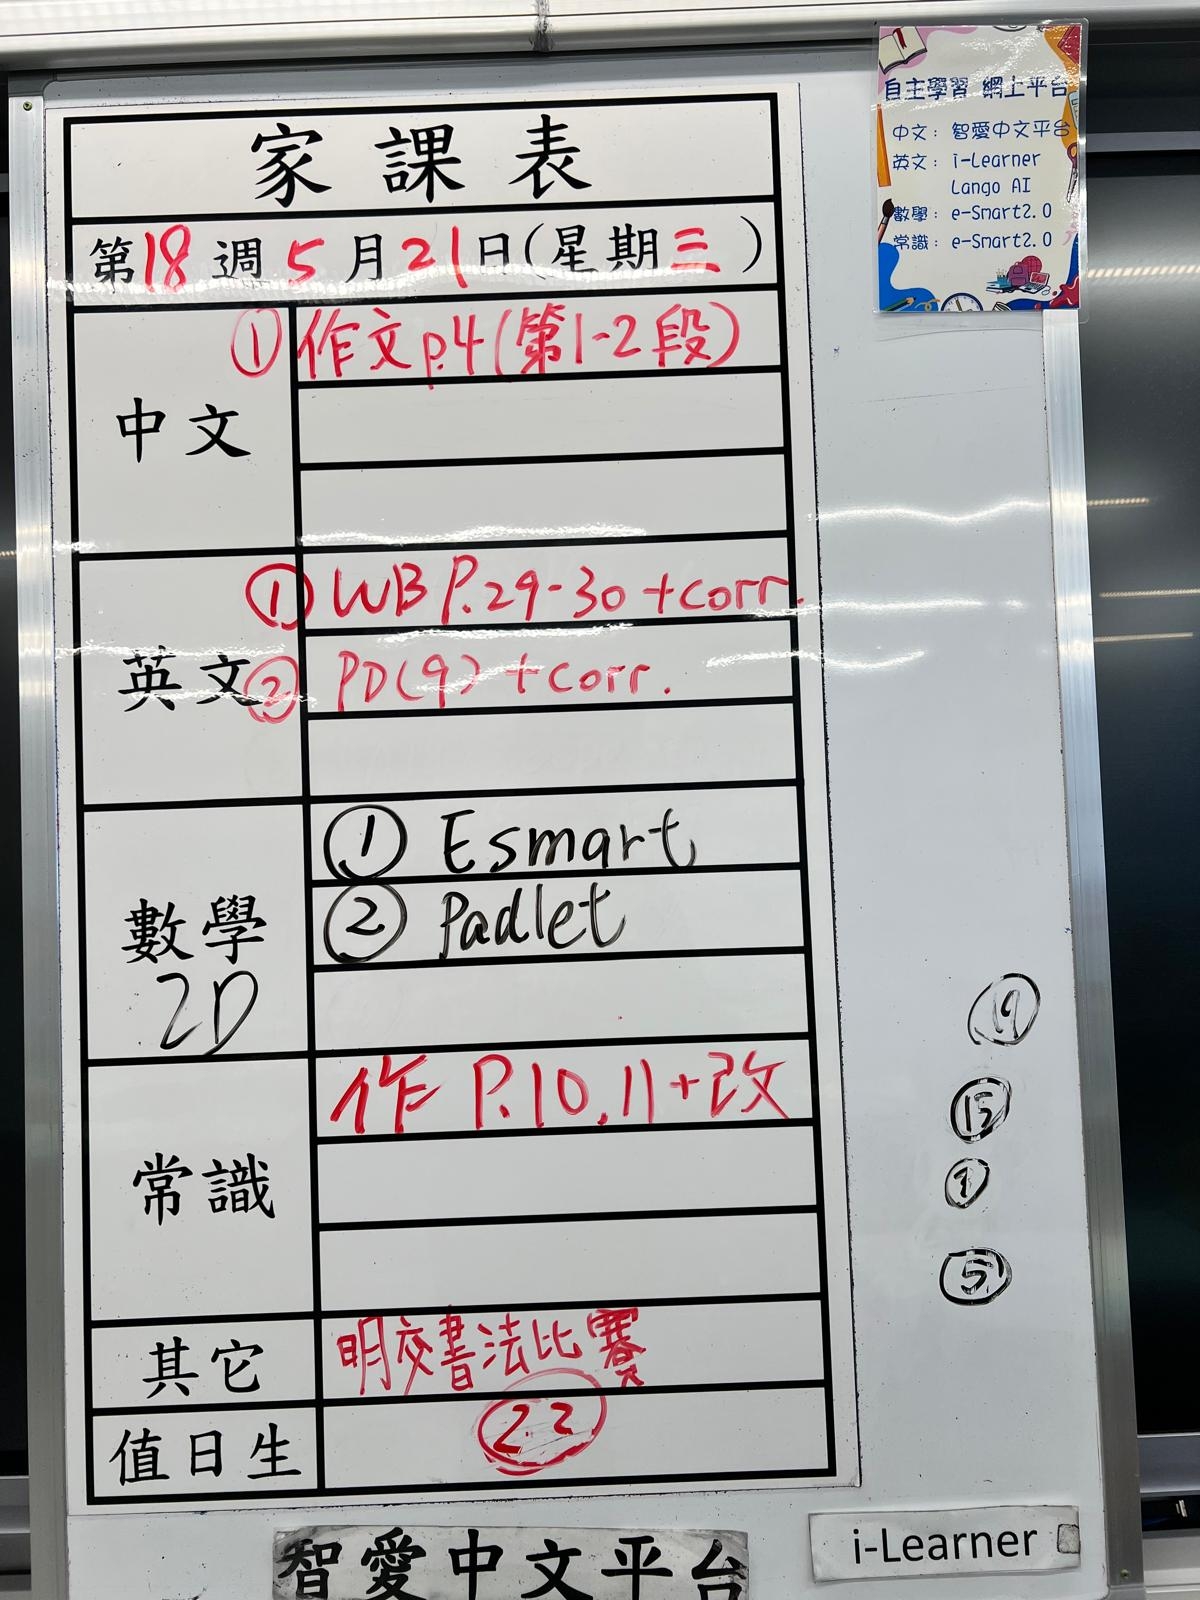 家課表
第18週5月21日(星期三)
中文
① 作文 p.4(第1-2段)
英文
① WB P.29-30 +corr.
② PD(9) +corr.
數學
2D
① Esmart
② Padlet
常識
作 P.10,11+改
其它
明交書法比賽
值日生
22
智愛中文平台
i-Learner
自主學習 網上平台
中文：智愛中文平台
英文：i-Learner
Lango AI
數學：e-Smart2.0
常識：e-Smart2.0
⑮
⑤